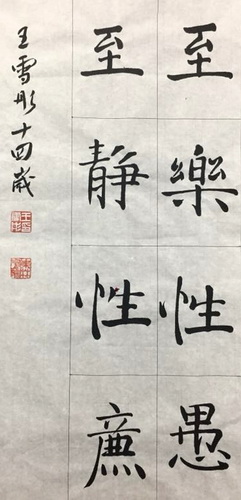 至樂性愚
至静性廉
王雪彤十四歲